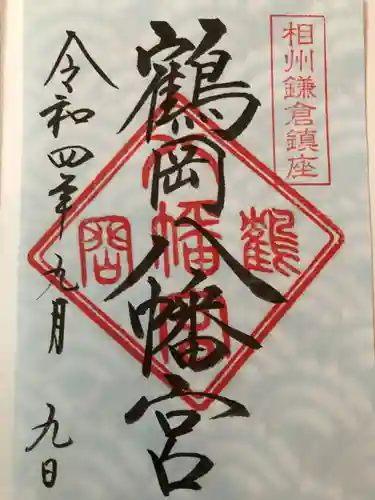 相州鎌倉鎮座
鶴岡八幡宮
令和四年九月九日